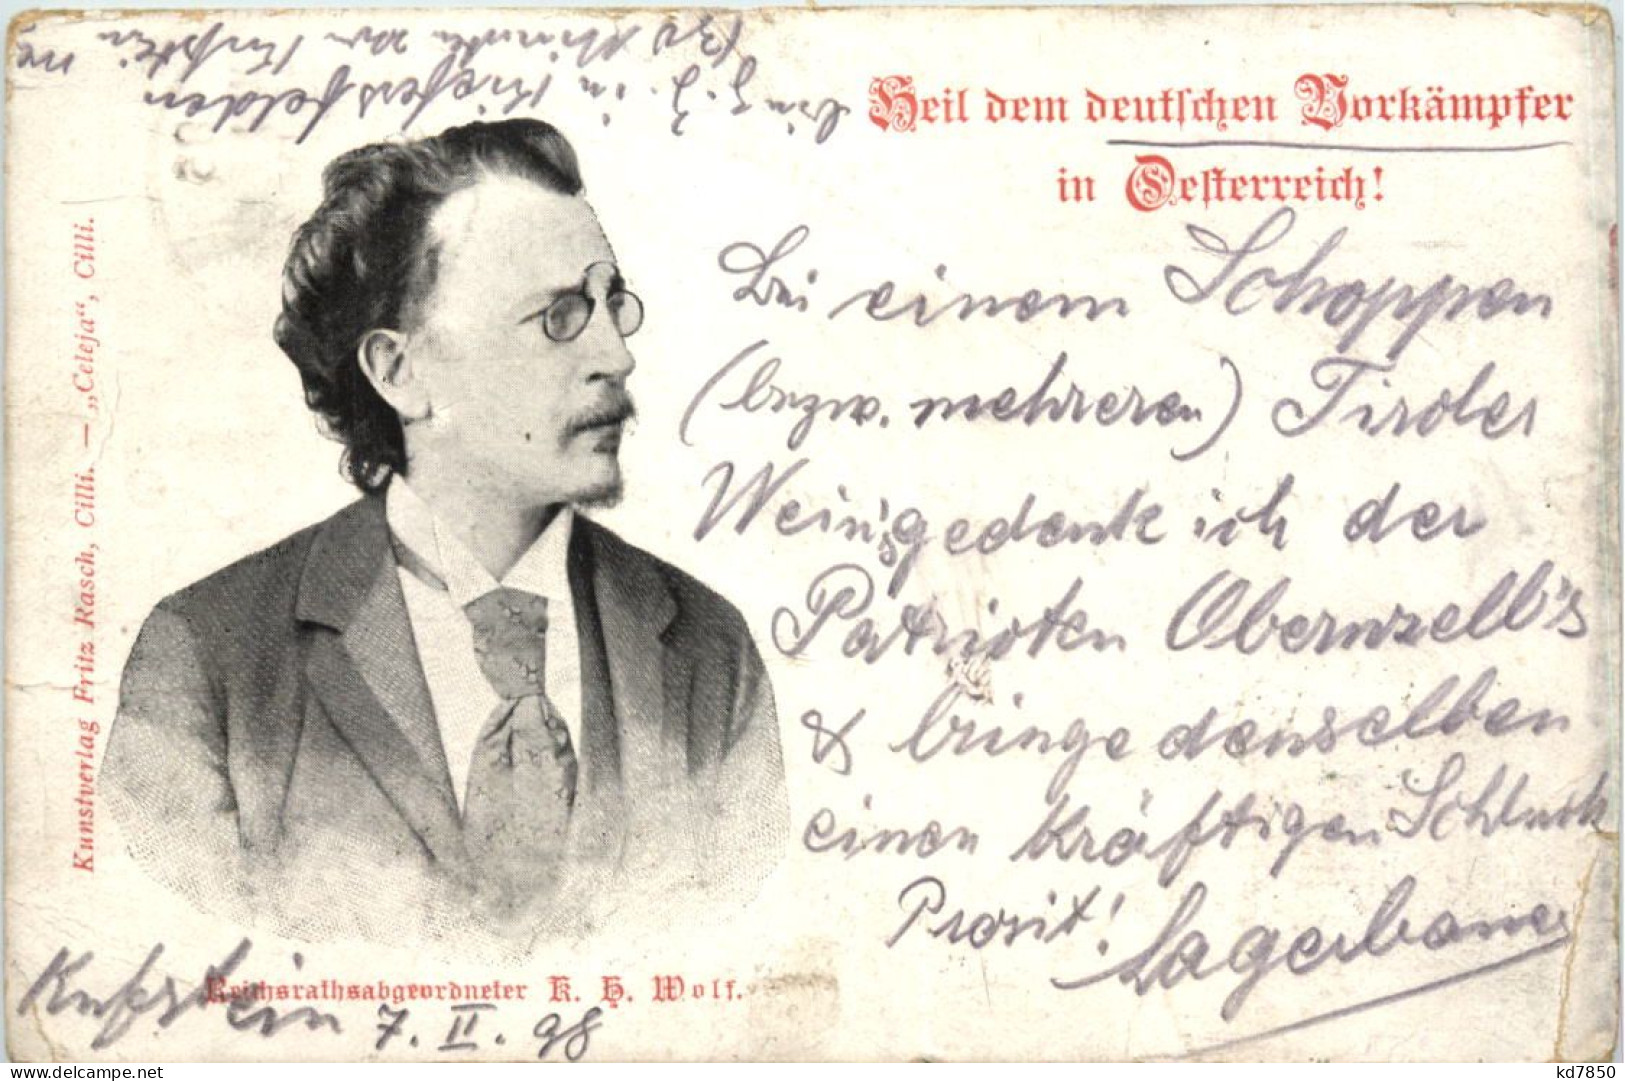 Heil dem deutschen Vorkämpfer
in Oesterreich!
bin z. Z. in Kiefersfelden
(30 Minuten von Kufstein
Bei einem Schoppen
(bezw. mehreren) Tiroler
Wein's gedenke ich der
Patrioten Obernzell's
& bringe denselben
einen kräftigen Schluck
Prosit! Lagerbauer
Kunstverlag Fritz Rasch, Cilli. — „Celeja“, Cilli.
Reichsrathsabgeordneter K. H. Wolf.
Kufstein 7. II. 98
delcampe.net
kd7850